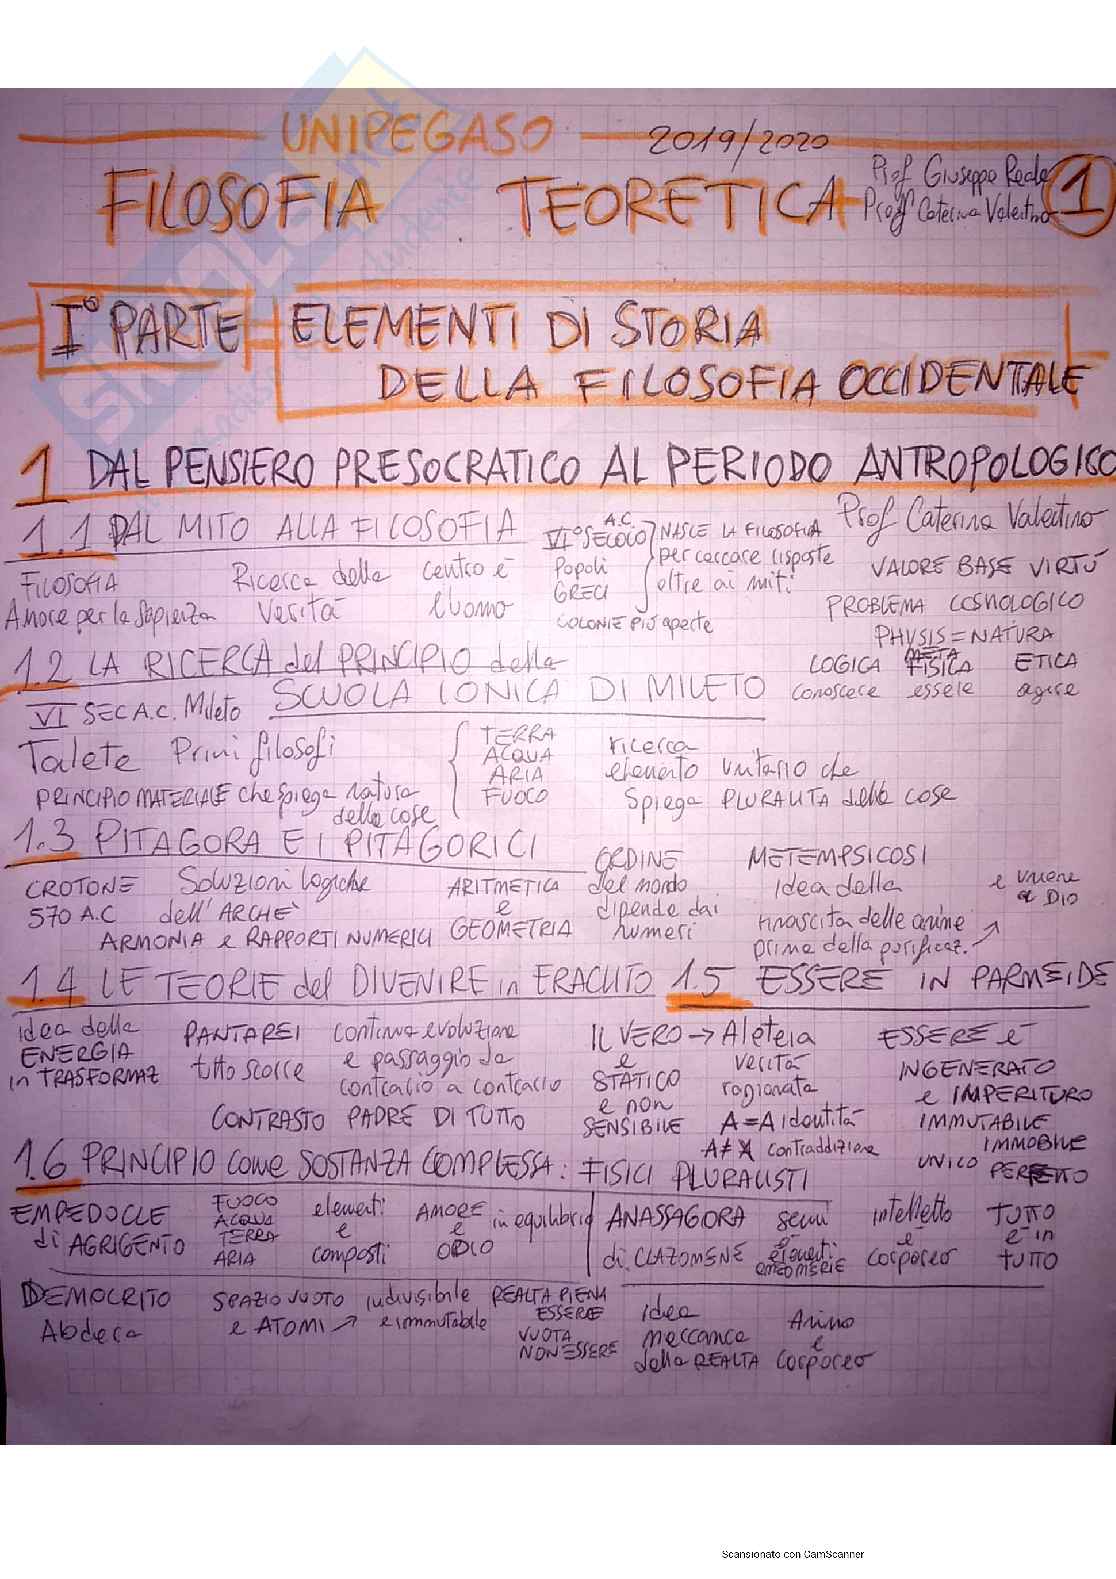 UNIPEGASO 2019/2020
FILOSOFIA TEORETICA
Prof Giuseppe Reale
Proff Caterina Valentino
1
I° PARTE
ELEMENTI DI STORIA
DELLA FILOSOFIA OCCIDENTALE
1 DAL PENSIERO PRESOCRATICO AL PERIODO ANTROPOLOGICO
Prof Caterina Valentino
1.1 DAL MITO ALLA FILOSOFIA
FILOSOFIA
Amore per la Sapienza
Ricerca della
Verità
centro è
l'uomo
A.C.
VI° SECOLO
Popoli
GRECI
COLONIE PIÙ aperte
NASCE LA FILOSOFIA
per cercare risposte
oltre ai miti
VALORE BASE VIRTÙ
PROBLEMA COSMOLOGICO
PHYSIS = NATURA
LOGICA META FISICA ETICA
conoscere essere agire
1.2 LA RICERCA del PRINCIPIO della
SCUOLA IONICA DI MILETO
VI SEC A.C. Mileto
Talete Primi filosofi
PRINCIPIO MATERIALE che spiega natura
delle cose
TERRA
ACQUA
ARIA
FUOCO
ricerca
elemento unitario che
spiega PLURALITA delle cose
1.3 PITAGORA E I PITAGORICI
CROTONE
570 A.C
Soluzioni logiche
dell'ARCHÈ
ARMONIA e RAPPORTI NUMERICI
ARITMETICA
e
GEOMETRIA
ORDINE
del mondo
dipende dai
numeri
METEMPSICOSI
idea della
rinascita delle anime
prima della purificaz.
e unione
a DIO
1.4 LE TEORIE del DIVENIRE in ERACLITO
idea della
ENERGIA
in TRASFORMAZ
PANTAREI
tutto scorre
continua evoluzione
e passaggio da
contrario a contrario
CONTRASTO PADRE DI TUTTO
1.5 ESSERE IN PARMEIDE
IL VERO → Aleteia
e
STATICO
e non
SENSIBILE
verità
ragionata
A = A identità
A ≠ A contraddizione
ESSERE è
INGENERATO
e IMPERITURO
IMMUTABILE
IMMOBILE
UNICO PERFETTO
1.6 PRINCIPIO come SOSTANZA COMPLESSA: FISICI PLURALISTI
EMPEDOCLE
di AGRIGENTO
FUOCO
ACQUA
TERRA
ARIA
elementi
e
composti
AMORE
e
ODIO
in equilibrio
ANASSAGORA
di CLAZOMENE
semi
o
elementi
OMEOMERIE
intelletto
è
corporeo
TUTTO
È in
TUTTO
DEMOCRITO
Abdera
SPAZIO VUOTO
e ATOMI →
indivisibile
e immutabile
REALTA PIENA
ESSERE
VUOTA
NON ESSERE
idea
meccanica
della REALTA
Animo
è
corporeo
Scansionato con CamScanner